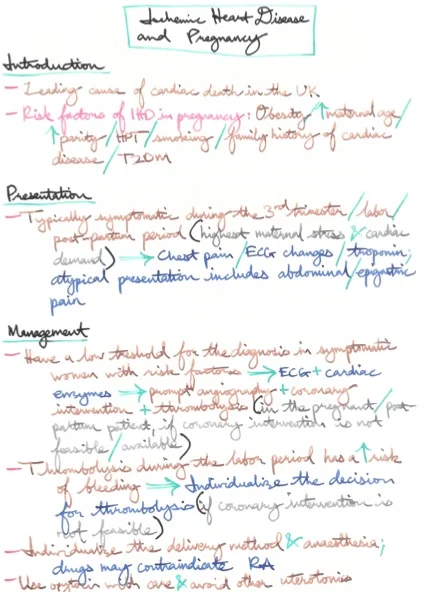 Ischemic Heart Disease
and Pregnancy
Introduction
- Leading cause of cardiac death in the UK
- Risk factors of IHD in pregnancy: Obesity / ↑maternal age /
↑parity / HPT / smoking / family history of cardiac
disease / T2DM
Presentation
- Typically symptomatic during the 3rd trimester / labor /
post-partum period (highest maternal stress & cardiac
demand) → Chest pain / ECG changes / troponin;
atypical presentation includes abdominal / epigastric
pain
Management
- Have a low treshold for the diagnosis in symptomatic
women with risk factors → ECG + cardiac
enzymes → prompt angiography + coronary
intervention + thrombolysis (in the pregnant / post-
partum patient, if coronary intervention is not
feasible / available)
- Thrombolysis during the labor period has a ↑risk
of bleeding → Individualize the decision
for thrombolysis (if coronary intervention is
not feasible)
- Individualize the delivery method & anaesthesia;
drugs may contraindicate RA
- Use with care & avoid other uterotonis